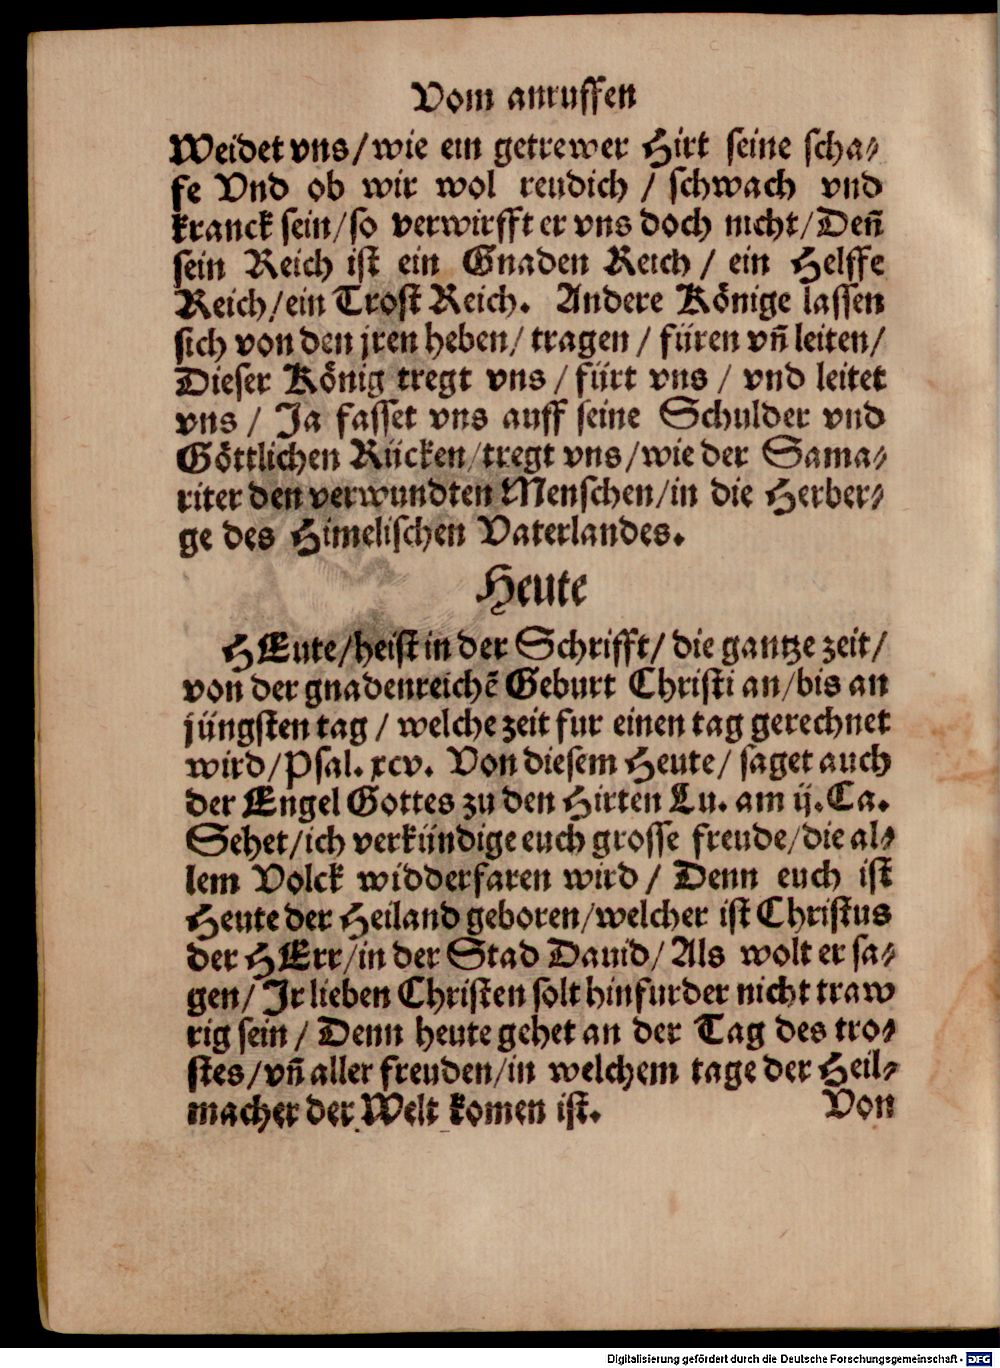 Vom anruffen
Weidet vns/wie ein getrewer Hirt seine scha⸗
fe Vnd ob wir wol reudich / schwach vnd
kranck sein/so verwirfft er vns doch nicht/Deñ
sein Reich ist ein Gnaden Reich / ein Helffe
Reich/ein Trost Reich. Andere Könige lassen
sich von den jren heben/ tragen / füren vñ leiten/
Dieser König tregt vns / fürt vns / vnd leitet
vns / Ja fasset vns auff seine Schulder vnd
Göttlichen Rücken/tregt vns/wie der Sama⸗
riter den verwundten Menschen/in die Herber⸗
ge des Himelischen Vaterlandes.
Heute
HEute/heist in der Schrifft/ die gantze zeit/
von der gnadenreichẽ Geburt Christi an/bis an
jüngsten tag / welche zeit fur einen tag gerechnet
wird/Psal. xcv. Von diesem Heute/ saget auch
der Engel Gottes zu den Hirten Lu. am ij. Ca.
Sehet/ich verkündige euch grosse freude/die al⸗
lem Volck widderfaren wird / Denn euch ist
Heute der Heiland geboren/welcher ist Christus
der HErr/in der Stad Dauid/ Als wolt er sa⸗
gen/ Jr lieben Christen solt hinfurder nicht traw
rig sein / Denn heute gehet an der Tag des tro⸗
stes/vñ aller freuden/in welchem tage der Heil⸗
macher der Welt komen ist. Von
Digitalisierung gefördert durch die Deutsche Forschungsgemeinschaft - DFG